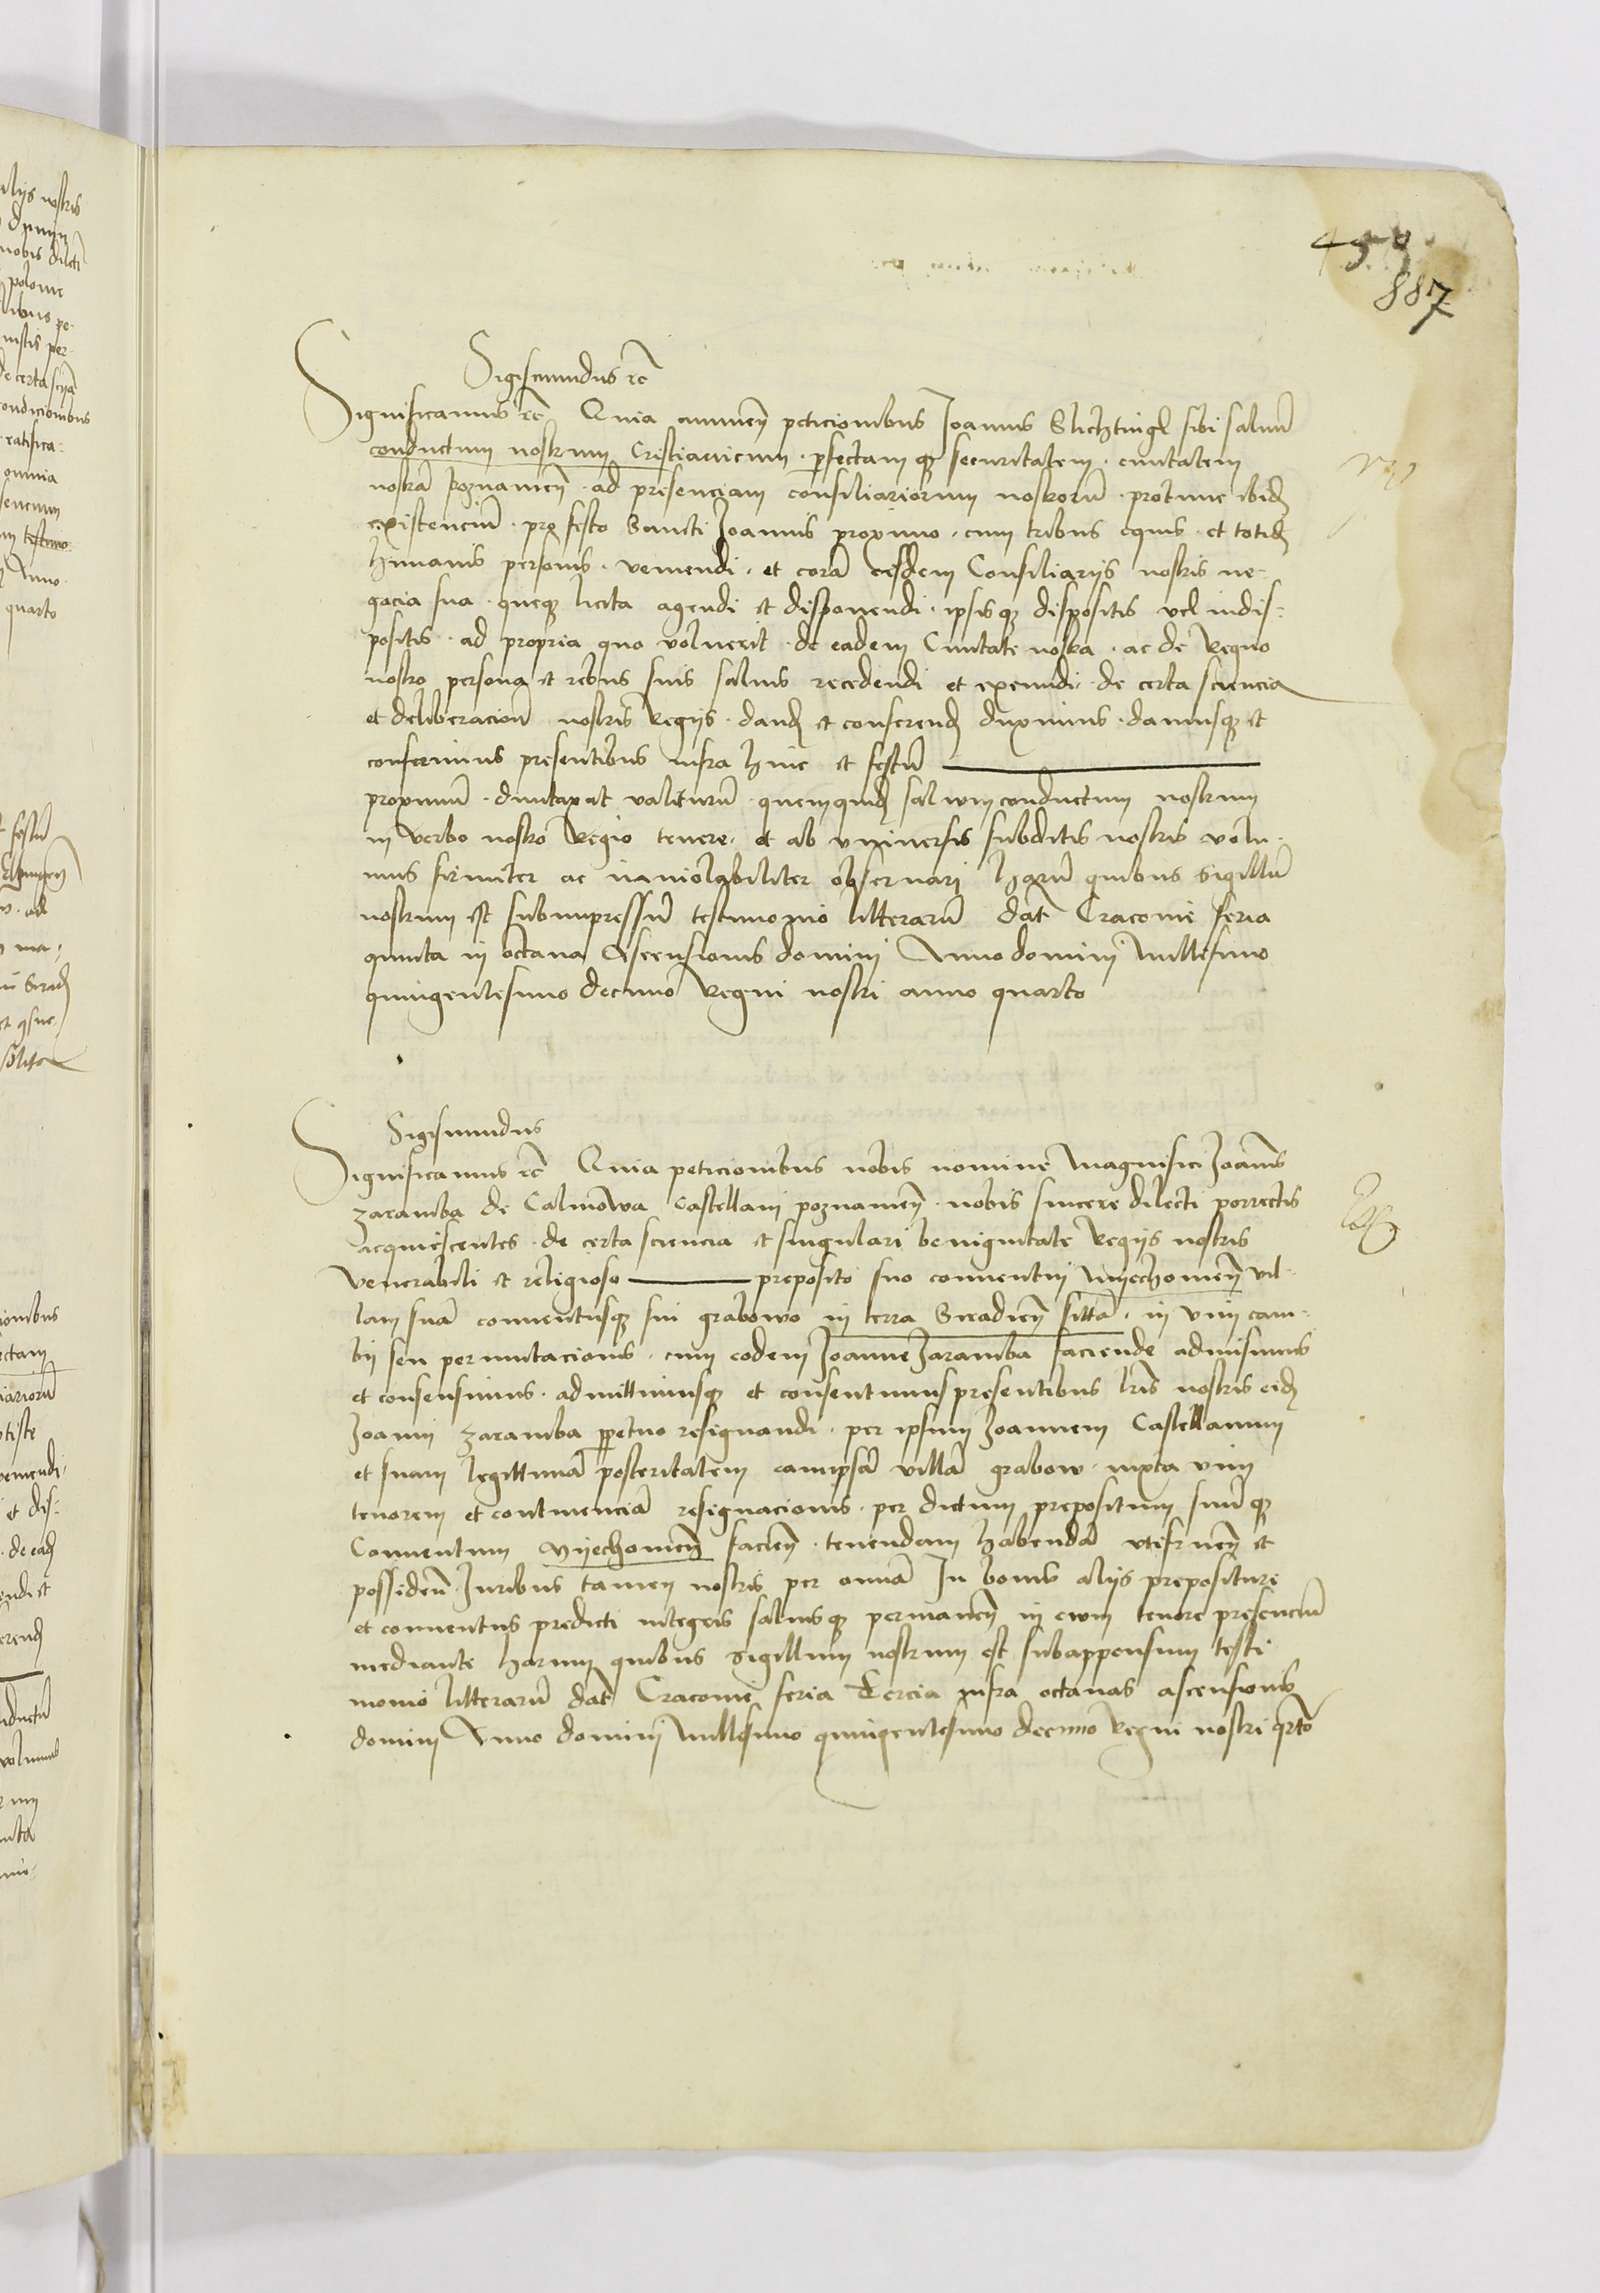 459
887
Sigismundus rc
Significamus rc Quia annuen peticionibus Joannis Slichtingk sibi salvum
conductum nostrum Cristianicum perfectamque securitatem civitatem
nostram Poznamen ad presenciam consiliariorum nostrorum protunc ibidem
existencium pro festo Sancti Joannis proximo cum tribus equis et totidem
humanis personis veniendi et coram eisdem Consiliariis nostris ne-
gocia sua queque licita agendi et disponendi ipsisque dispositis vel indis-
positis ad propria quo voluerit de eadem Civitate nostra ac de Regno
nostro persona et rebus suis salvis recedendi et exeundi de certa sciencia
et deliberacione nostris Regiis dand et conferend duximus damusque et
conferimus presentibus infra hinc et festum
proximum duntaxat valiturum quemquidem salvumconductum nostrum
in verbo nostro Regio tenere et ab universis subditis nostris volu-
mus firmiter ac inviolabiliter observari harum quibus Sigillum
nostrum est subimpressum testimonio litterarum dat Cracovie feria
quinta in octava Ascensionis domini Anno domini Millesimo
quingentesimo decimo Regni nostri anno quarto
Sigismundus
Significamus rc Quia peticionibus nobis nomine Magnifici Joannis
Zaramba de Calinowa Castellani poznamen nobis sincere dilecti porrectis
acquiescentes de certa sciencia et singulari benignitate Regiis nostris
Venerabili et religioso preposito suo conventui Myechomen vil-
lam suam conventusque sui grabowo in terra Siradien sittam in vim cam-
bii seu permutacionis cum eodem Joanne Zaramba faciende admisimus
et consensimus admittimusque et consentimus presentibus lris nostris eidem
Joanni Zaramba perpetuo resignandi per ipsum Joannem Castellanum
et suam legittimam posteritatem eamipsam villam grabow iuxta vim
tenorem et continenciam resignacionis per dictum prepositum suumque
Conventum Myechomen facien tenendam habendam utifruen et
possiden Juribus tamen nostris per omnia In bonis aliis prepositure
et conventus predicti integris salvisque permanen in ewm tenore presencium
mediante harum quibus Sigillum nostrum est subappensum testi
monio litterarum dat Cracovie feria Tercia infra octavas ascensionis
domini Anno domini Millesimo quingentesimo decimo Regni nostri qrto